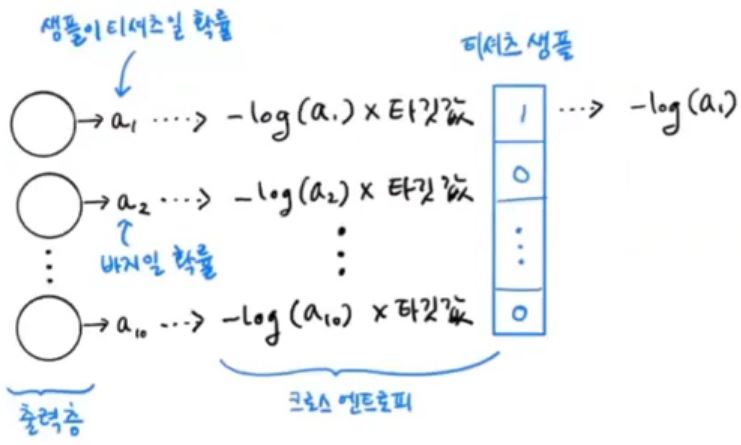 샘플이 티셔츠일 확률
티셔츠 샘플
→ a₁ ····> -log(a₁) × 타깃값 1 ····> -log(a₁)
→ a₂ ····> -log(a₂) × 타깃값 0
바지일 확률
⋮ ⋮ ⋮
→ a₁₀ ····> -log(a₁₀) × 타깃값 0
크로스 엔트로피
출력층